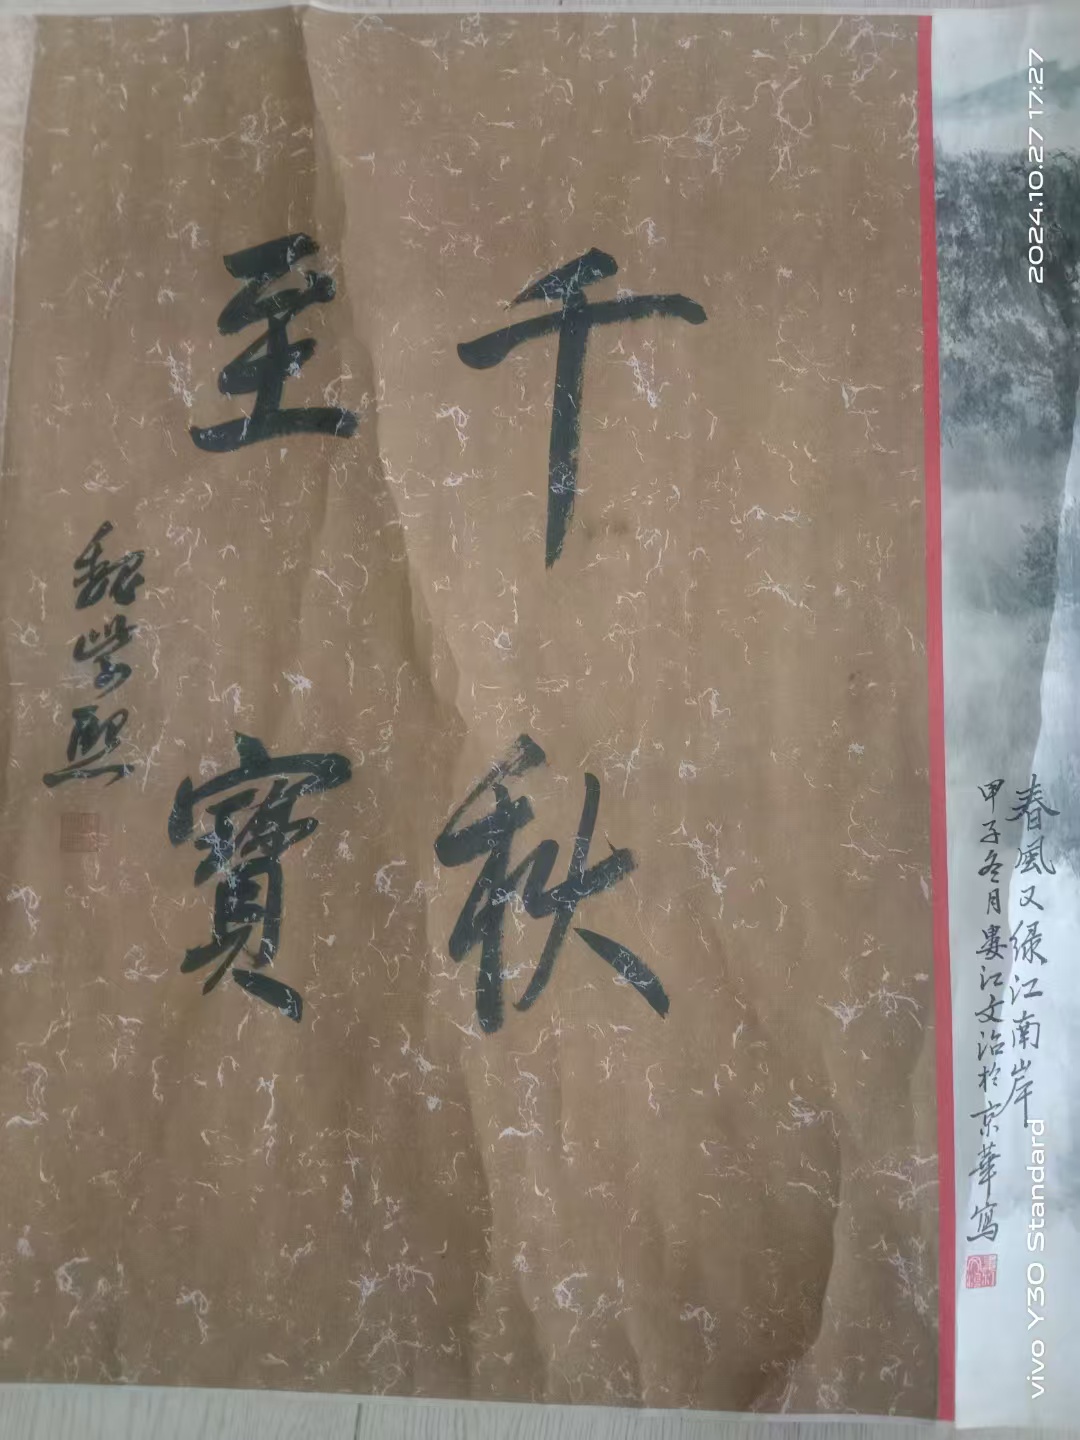 春風又绿江南岸
甲子冬月婁江文治於京華寫
千秋
至寶
魏紫熙
2024.10.27 17:27
vivo Y30 Standard